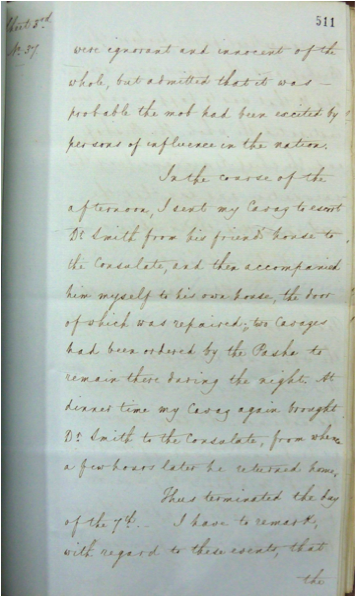 511
Sheet 3rd
No. 37
were ignorant and innocent of the
whole, but admitted that it was –
probable the mob had been excited by
persons of influence in the nation.
In the course of the
afternoon, I sent my Cavaz to escort
Dr. Smith from his friends house to
the Consulate, and then accompanied
him myself to his own house, the door
of which was repaired; two Cavazes
had been ordered by the Pasha to
remain there during the night. At
dinner time my Cavaz again brought
Dr. Smith to the Consulate, from whence
a few hours later he returned home.
Thus terminated the day
of the 7th. I have to remark,
with regard to these events, that
the